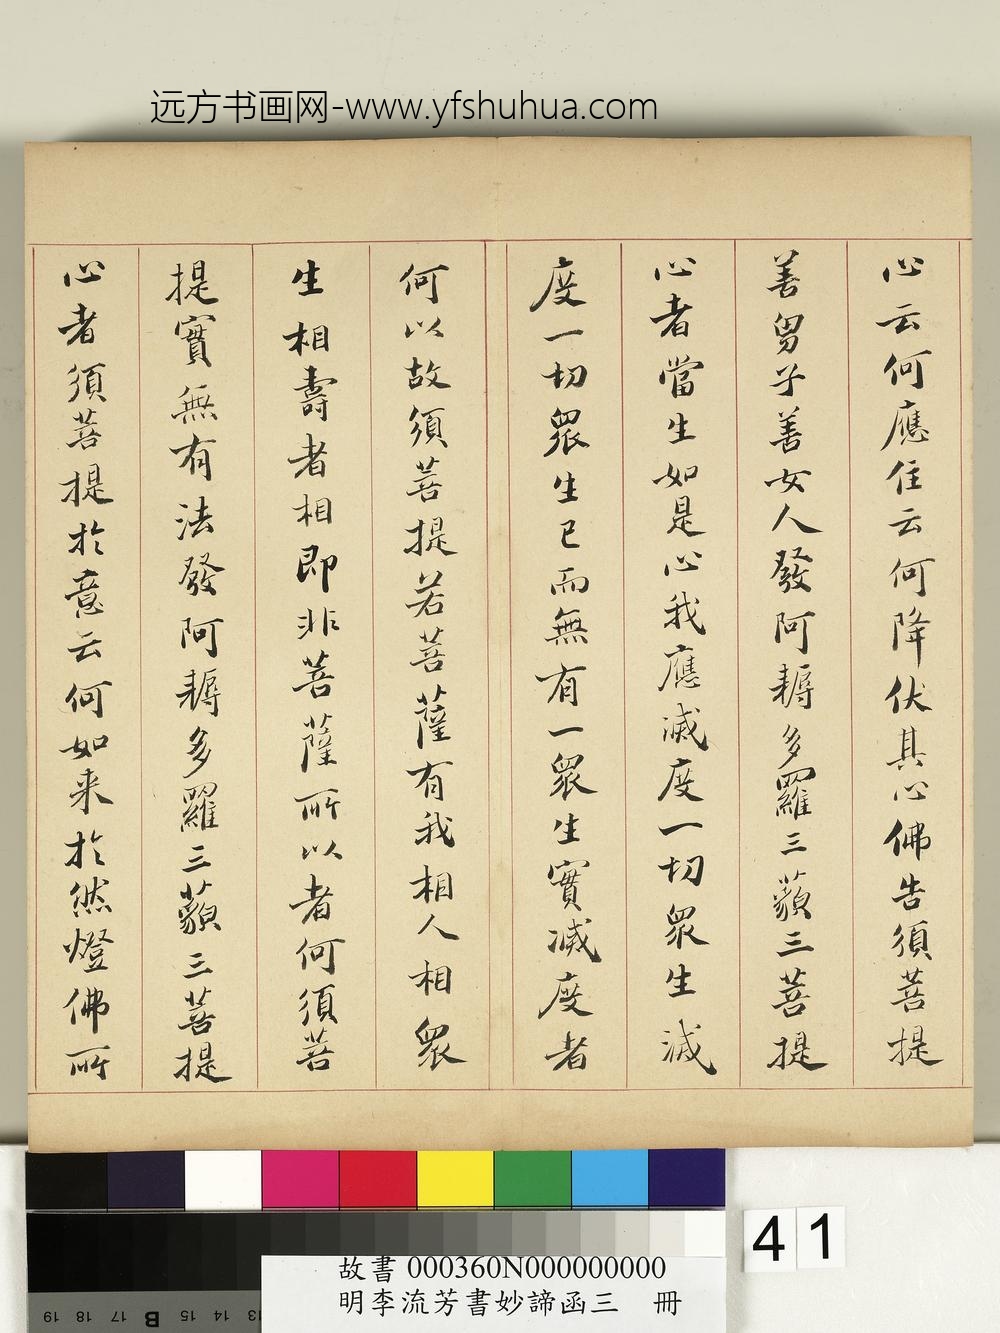 远方书画网-www.yfshuhua.com
心云何應住云何降伏其心佛告須菩提
善男子善女人發阿耨多羅三藐三菩提
心者當生如是心我應滅度一切眾生滅
度一切眾生已而無有一眾生實滅度者
何以故須菩提若菩薩有我相人相眾
生相壽者相即非菩薩所以者何須菩
提實無有法發阿耨多羅三藐三菩提
心者須菩提於意云何如来於然燈佛所
41
故書 000360N000000000
明李流芳書妙諦函三 冊
B
19 18 17 15 14 13